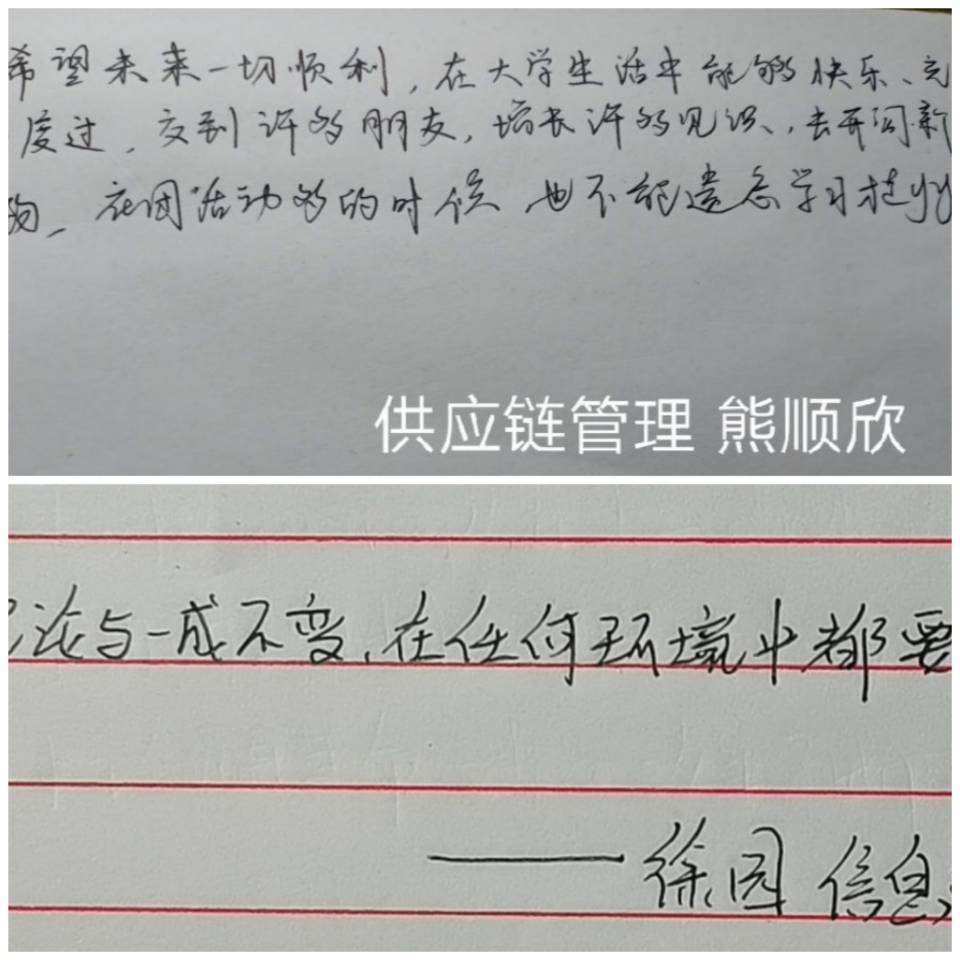 希望未来一切顺利,在大学生活中能够快乐、充
度过,交到许多朋友,增长许多见识,去开阔新
物,在团活动多的时候,也不能遗忘学习
供应链管理 熊顺欣
沦与一成不变,在任何环境中都要
——徐园 信息